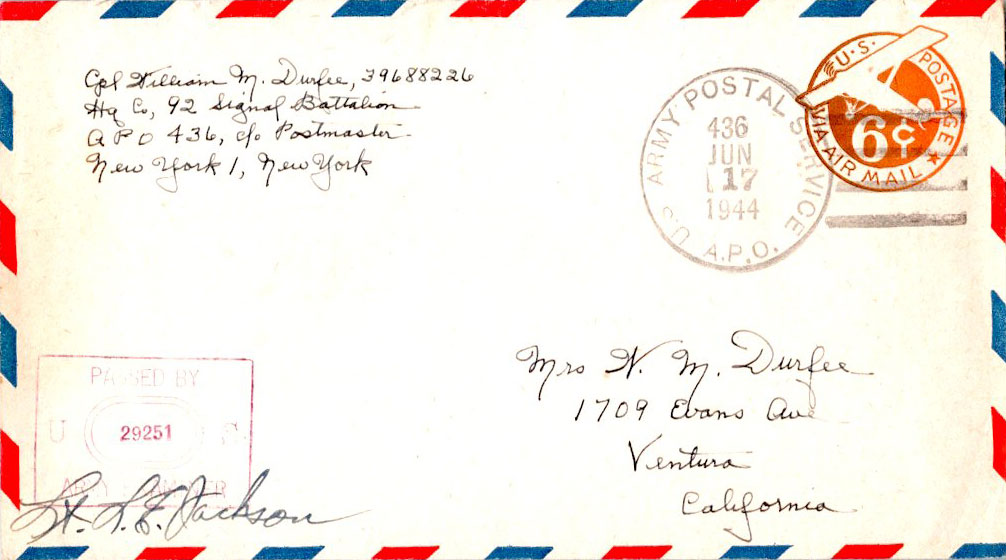 Cpl William M. Durfee, 39688226
Hq Co, 92 Signal Battalion
A P O 436, c/o Postmaster
New York 1, New York
U.S. ARMY POSTAL SERVICE
436
JUN
17
1944
A.P.O.
U.S. POSTAGE
6¢
VIA AIR MAIL
PASSED BY
U 29251 S.
ARMY EXAMINER
Lt. L. F. Jackson
Mrs W. M. Durfee
1709 Evans Ave
Ventura
California